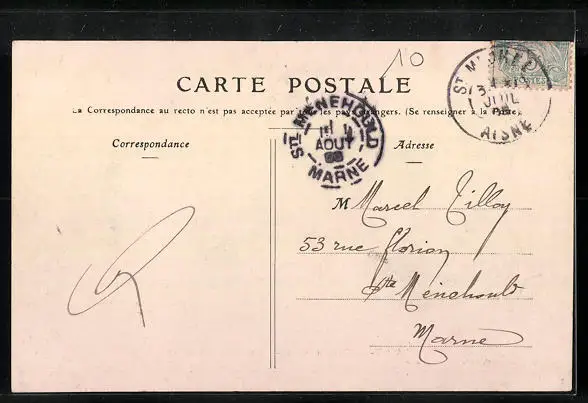 10
CARTE POSTALE
La Correspondance au recto n'est pas acceptée par les pays étrangers. (Se renseigner à la Poste)
ST MICHEL
31
JUIL
AISNE
POSTES
STE MENEHOULD
AOUT
MARNE
Correspondance
Adresse
M Marcel Tilloy
53 rue Florion
Ste Ménehould
Marne